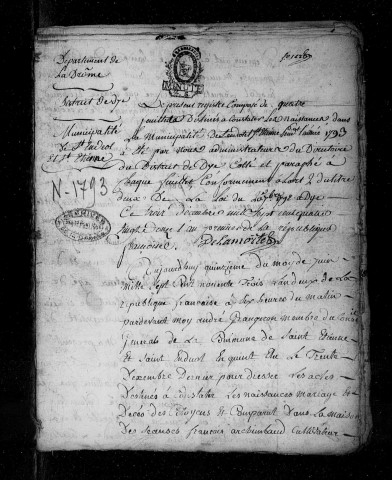 Département de
La Drôme
District de Dye
Municipalité
de St Andéol
et St Etienne
N-1793
ARCHIVES
Le present registre Composé de quatre
feuillets Destinés à Constater Les naissances dans
La Municipalité de St Andéol St Etienne 1793
à été par nous administrateur du Directoire
du District de Dye Cotté et paraphé a
Chaque feuillet Conformément à l'art 2 du titre
deux De La Loi du 20 7bre à Dye
Ce trois Décembre mil sept cent quatre
vingt douze l'an premier de la république
françoise. Delamorte
Aujourd'huy quinzieme du mois de
Mille Sept Cent nonente trois l'an deux de La
republique françoise à sept heures du matin
pardevant moy andré Plangeon membre du Conseil
General de La Commune de Saint Etienne
et Saint Andeol Elu Le trente
Décembre Dernier pour dresser Les actes
Destinés à Constater Les naissances mariage et
Décés des Citoyens est Comparut Dans La maison
Des seances françois archimbaud Cultivateur